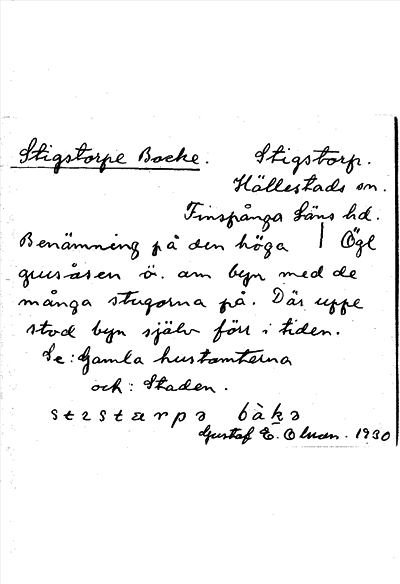 Stigstorpe Backe. Stigstorp.
Hällestads sn.
Finspånga läns hd.
Benämning på den höga | Ögl
grusåsen ö. om byn med de
många stugorna på. Där uppe
stod byn själv förr i tiden.
Se: Gamla hustomterna
och: Staden.
bàkə
Gustaf E. Olsson. 1930